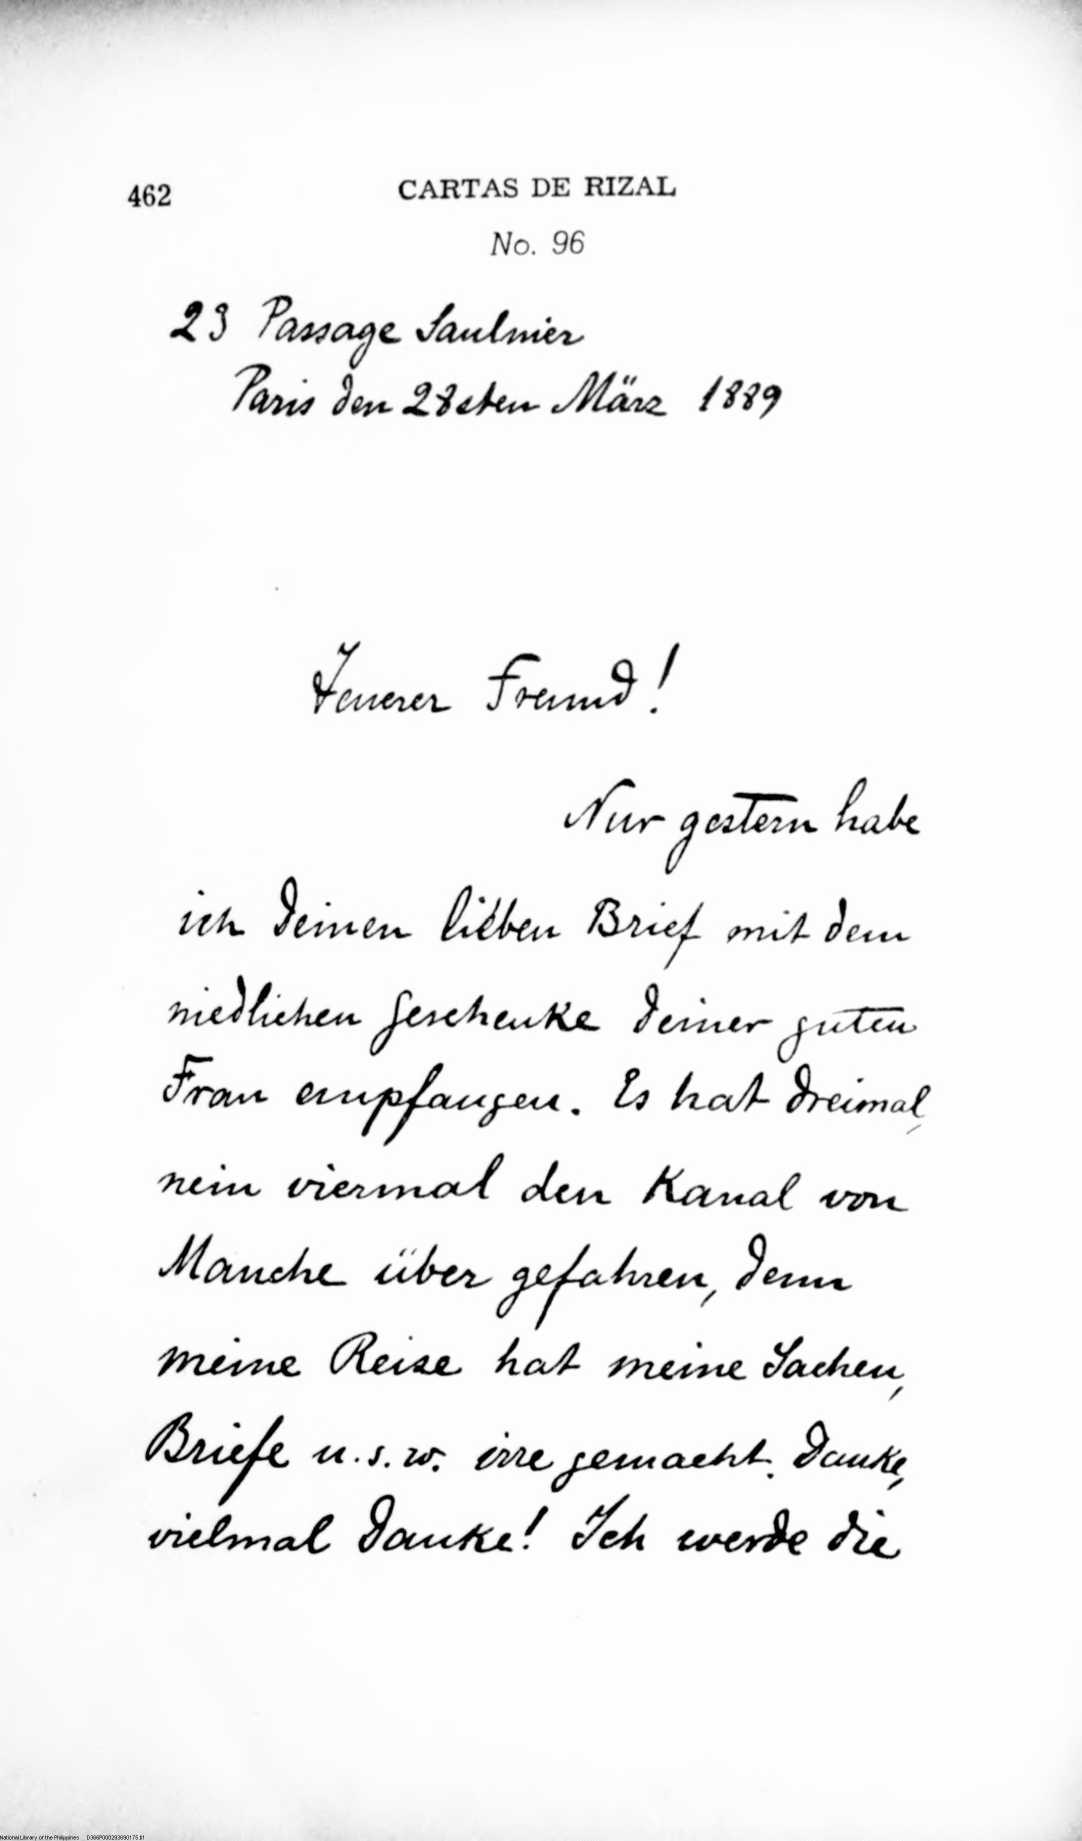 462 CARTAS DE RIZAL
No. 96
23 Passage Saulnier
Paris den 28sten März 1889
Teuerer Freund!
Nur gestern habe
ich deinen lieben Brief mit dem
niedlichen Geschenke deiner guten
Frau empfangen. Es hat dreimal,
nein viermal den Kanal von
Manche über gefahren, denn
meine Reise hat meine Sachen,
Briefe u.s.w. irre gemacht. Danke,
vielmal Danke! Ich werde die
National Library of the Philippines D366P000293890175.tif